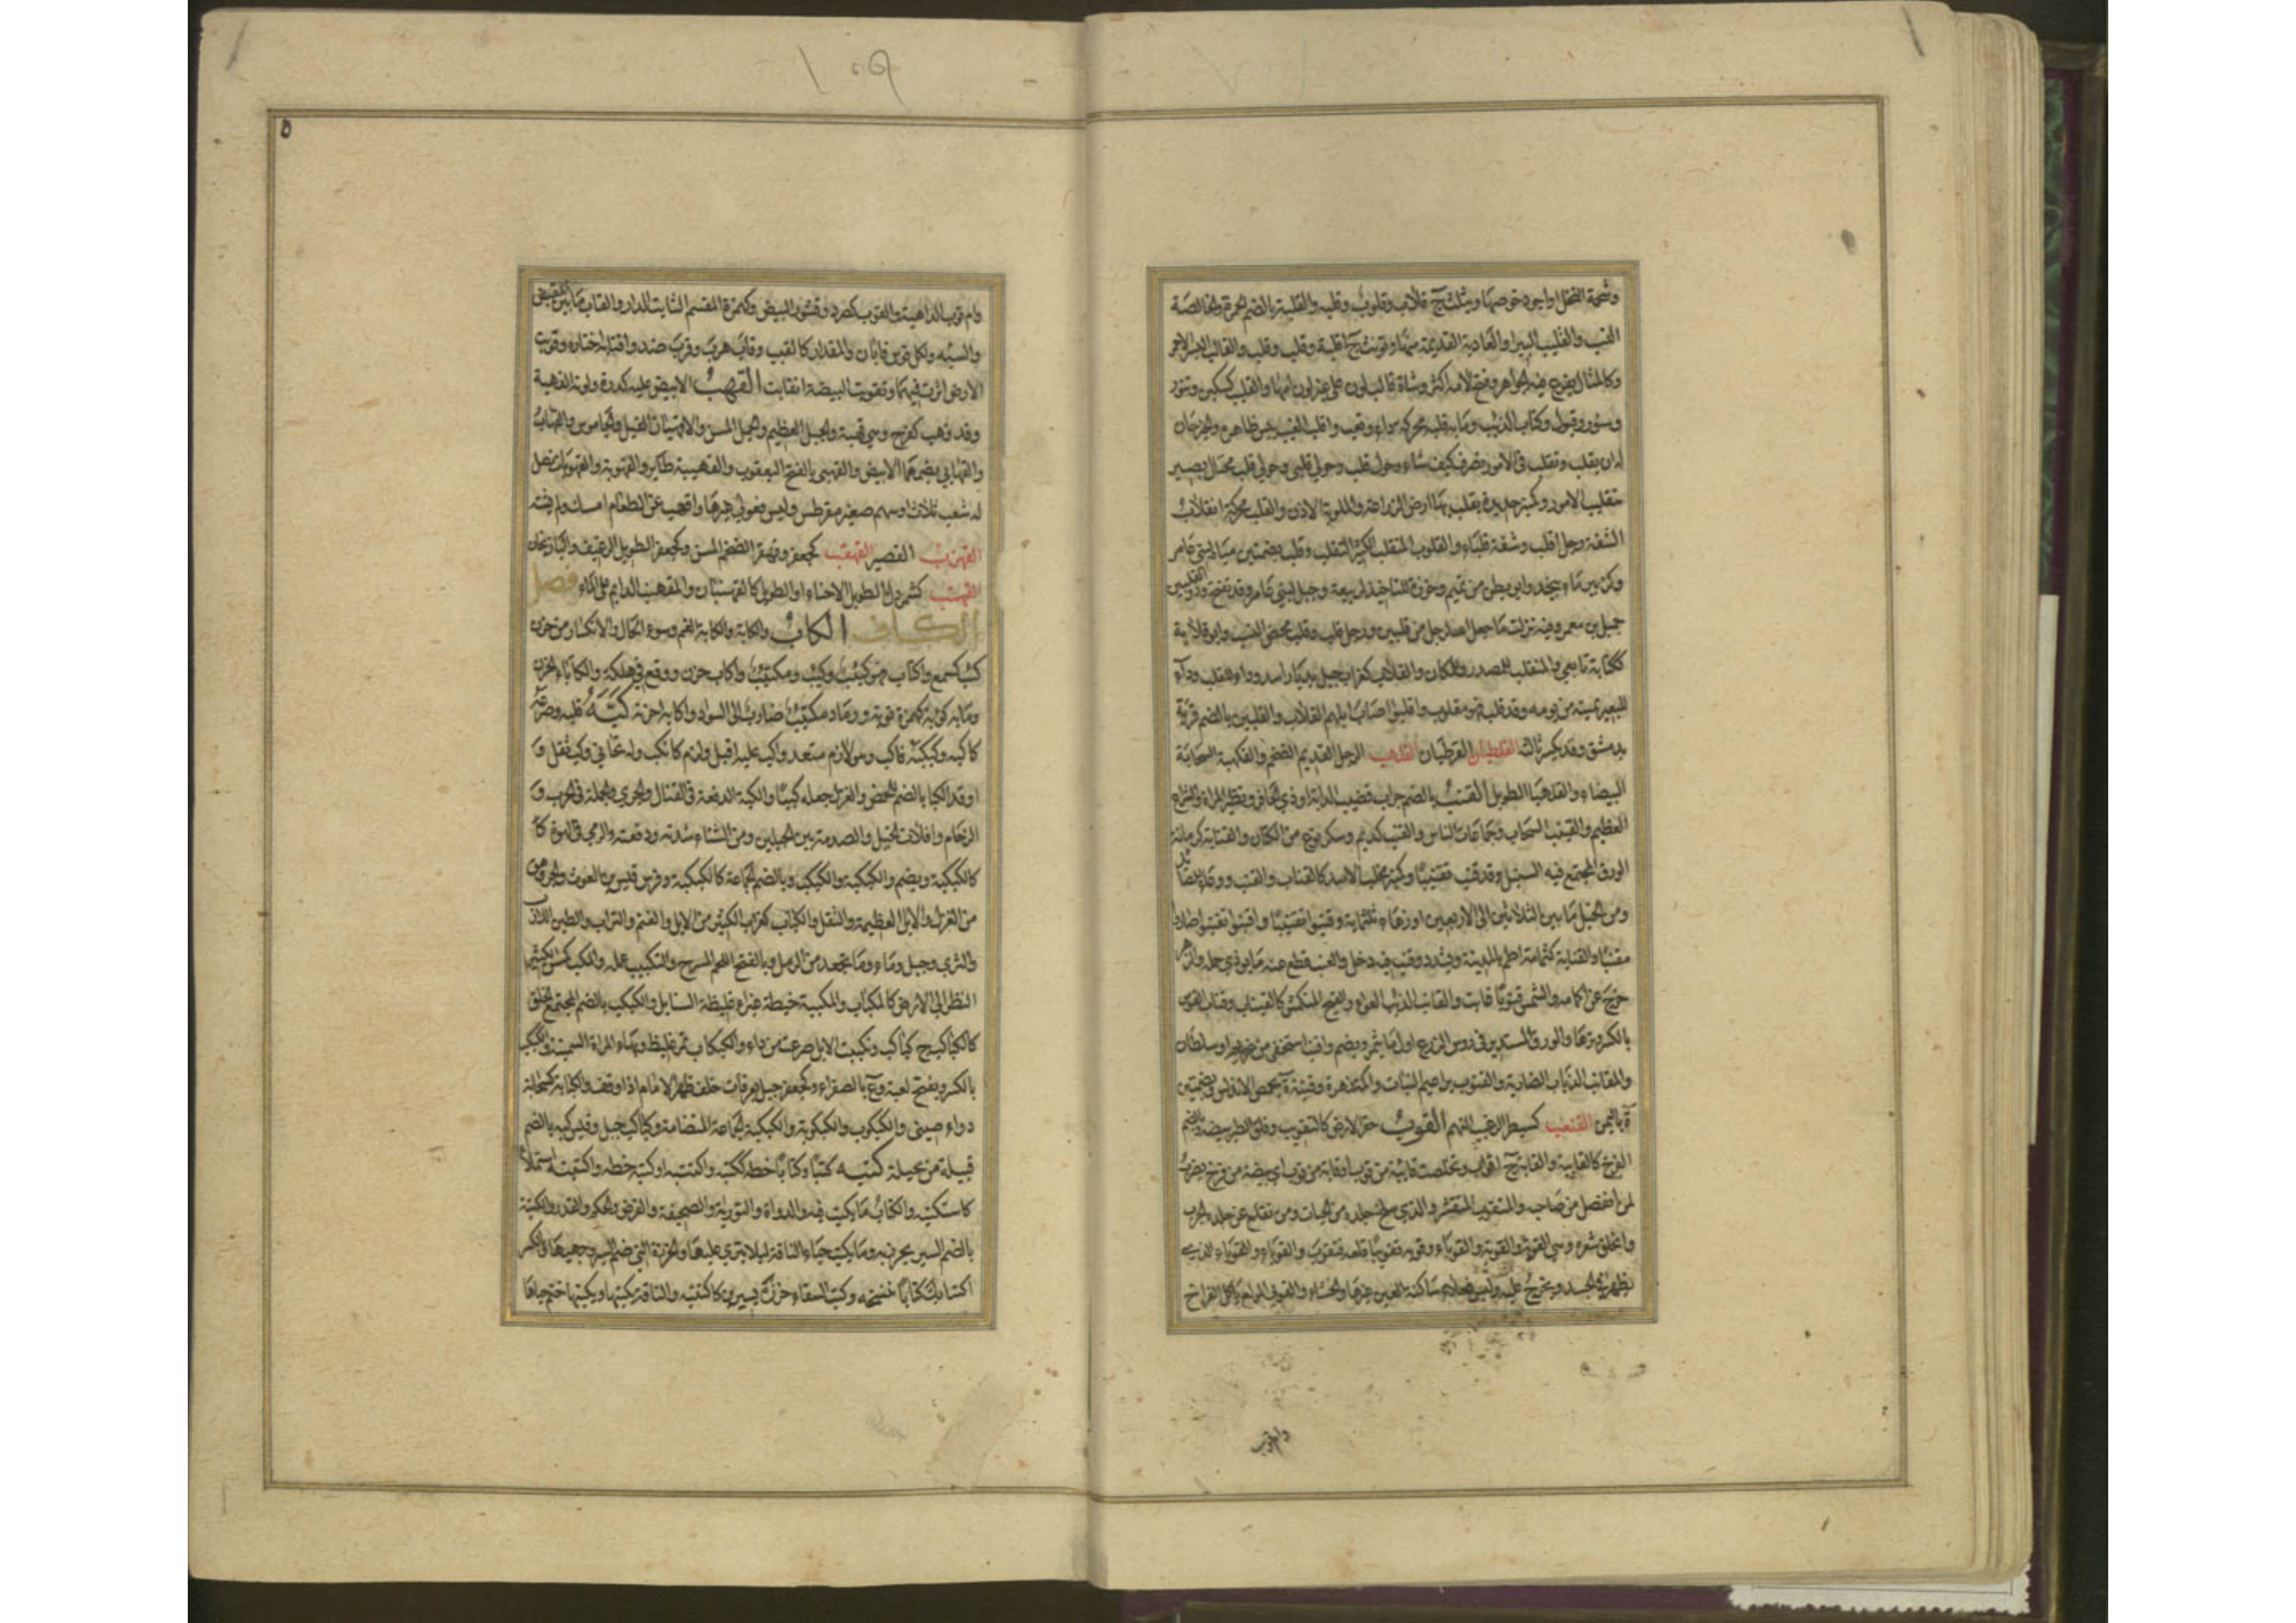 وشحمة النخل او اجود خوصها ويثلث ج قلاب وقلوب وقلبه والقلبة بالضم الحمرة والخالصة
القب والقليب البير او العادية القديمة منها ويونث ج اقلبة وقلب وقلب والقالب البسر الاحمر
وكالمثال يفرغ فيه الجواهر وفتح لامه اكثر وشاة قالب لون على غير لون امها والقليب كسكين وتنور
وسنور وقبول وكتاب الذيب وما به قلبة محركة داء وتعب واقلب العنب يبس ظاهره والخبز حان
له ان يقلب وتقلب في الامور تصرف كيف شاء وحول قلب وحولي قلبي وحولي قلب محتال بصير
بتقليب الامور وكمنبر حديدة يقلب بها ارض الزراعة والمقلوبة الاذن والقلب محركة انقلاب
الشفة رجل اقلب وشفة قلباء والقلوب المتقلب الكثير التقلب وقلب بضمتين مياه لبني عامر
وكزبير ماء بنجد وابو بطن من تميم وخرزة للتاخيذ لربيعة وجبل لبني عامر وقد تفتح وذو القلبين
جميل بن معمر وفيه نزلت ما جعل الله لرجل من قلبين ورجل قلب وقلب محض النسب وابو قلابة
ككتابة تابعي والمنقلب للمصدر وللمكان والقلاب كغراب جبل بديار اسد وداء للقلب وداء
للبعير يميته من يومه وقد قلب فهو مقلوب واقلبوا اصاب ابلهم القلاب والقلبين بالضم قرية
بدمشق وقد يكسر ثالثه القلطبان القرطبان القلهب الرجل القديم الضخم والقلهبة السحابة
البيضاء والقلهبا الطويل القنب بالضم جراب قضيب الدابة او ذي الحافر وبظر المراة والشراع
العظيم والقنيب السحاب وجماعات الناس والقنب كدنم وسكر نوع من الكتان والقنابة كرمانة
الورق المجتمع فيه السنبل وقد قنب تقنيبا وكمنبر مخلب الاسد كالقناب والقنب ووعاء للصائد
ومن الخيل ما بين الثلاثين الى الاربعين او زهاء ثلثماية وقنبوا تقنيبا واقنبوا وتقنبوا صاروا
مقنبا والقنابة كثمامة اطم بالمدينة ويشدد وقنب فيه دخل والعنب قطع عنه ما يوذي حمله والزهر
خرج عن اكمامه والشمس قنوبا غابت والقانب الذيب العواء والفيج المنكمش كالقيناب وقناب القوس
بالكسر وترها والورق المستدير في روس الزرع اول ما يثمر ويضم واقنب استخفى من غريم او سلطان
والمقانب الذياب الضارية والقنوب براعيم النبات واكمة زهره وقنبة ة بحمص الاندلس وبضمتين
ة باليمن القنعب كسبطر الرغيب النهم القوب حفر الارض كالتقويب وفلق الطير بيضه وبالضم
الفرخ كالقايبة والقابة ج اقواب وتخلصت قائبة من قوب او قابة من قوب اي بيضة من فرخ يضرب
لمن انفصل من صاحبه والمتقوب المتقشر والذي سلخ جلده من الحيات ومن تقلع عن جلده الجرب
وانحلق شعره وهي القوبة والقوبة والقوباء وقوبه تقويبا قلعه فتقوب والقوباء والقوباء الذي
يظهر في الجسد ويخرج عليه وليس فعلاء ساكنة العين غيرها والخشاء والقوبي المولع باكل الفراخ
وام قوب
وام قوب الداهية والقوب كصرد قشور البيض وكهمزة المقيم الثابت الدار والقاب ما بين المقبض
والسية ولكل قوس قابان والمقدار كالقيب وقاب هرب وقرب ضد واقتابه اختاره وقوبت
الارض اثرت فيها وتقوبت البيضة انقابت القهب الابيض عليه كدرة ولونه القهبة
وقد قهب كفرح وهي قهبة والجبل العظيم والجمل المسن والاقهبان الفيل والجاموس والقهاب
والقهابي بضمهما الابيض والقهبي بالفتح اليعقوب والقهيبة طائر والقهوبة والقهوباة نصل
له شعب ثلاث او سهم صغير مقرطس وليس فعولي غيرها واقهب عن الطعام امسك ولم يشته
القهزب القصير القهقب كجعفر وقهقر الضخم المسن وكجعفر الطويل الرغيب والباذنجان
القهنب كشمردل الطويل الاجناء او الطويل كالقهنبان والمقهنب الدايم على الماء فصل
الكاف الكاب والكابة والكآبة الغم وسوء الحال والانكسار من حزن
كئب كسمع واكتاب فهو كئب وكئيب ومكتئب واكاب حزن ووقع في هلكة والكاباء الحزن
وما به كؤبة كهمزة توبة ورماد مكتئب ضارب الى السواد واكابه احزنه كبه قلبه وصرعه
كاكبه وكبكبه فاكب وهو لازم متعد واكب عليه اقبل ولزم كانكب وله تحانى وكب ثقل و
اوقد الكبا بالضم للحمض والغزل جعله كببا والكبة الدفعة في القتال والجري والحملة في الحرب و
الزحام وافلات الخيل والصدمة بين الجبلين ومن الشتاء شدته ودفعته والرمي في الهوة كا
كالكبكبة ويضم والكبكبة والكبكب وبالضم الجماعة كالكبكبة وفرس قيس بن الغوث والجروهق
من الغزل والابل العظيمة والثقل والكباب كغراب الكثير من الابل والغنم والتراب والطين اللازب
والثرى وجبل وماء وما تجعد من الرمل وبالفتح اللحم المشرح والتكبيب عمله والمكب كمسن الكثير
النظر الى الارض كالمكباب والمكببة حنطة غبراء غليظة السنابل والكبكب بالضم المجتمع الخلق
كالكباكب ج كباكب وتكببت الابل صرعت من داء والكبكاب تمر غليظ وبهاء المراة السمينة والكبكب
بالكسر ويفتح لعبة و ع بالصفراء وكجعفر جبل بعرفات خلف ظهر الامام اذا وقف والكبابة كسحابة
دواء صيني والكبكوب والكبكوبة والكبكبة الجماعة المتضامة وكباكب جبل وقيس كبة بالضم
قبيلة من بجيلة كتبه كتبا وكتابا خطه ككتبه واكتتبه او كتبه خطه واكتتبه استملاه
كاستكتبه والكتاب ما يكتب فيه والدواة والتورية والصحيفة والفرض والحكم والقدر والكتبة
بالضم السير يخرز به وما يكتب حياء الناقة ليلا ينزى عليها والخرزة التي ضم السير وجهيها وبالكسر
اكتتابك كتابا تنسخه وكتب السقاء خرزه بسيرين كاكتتبه والناقة يكتبها ويكتبها ختم حياها